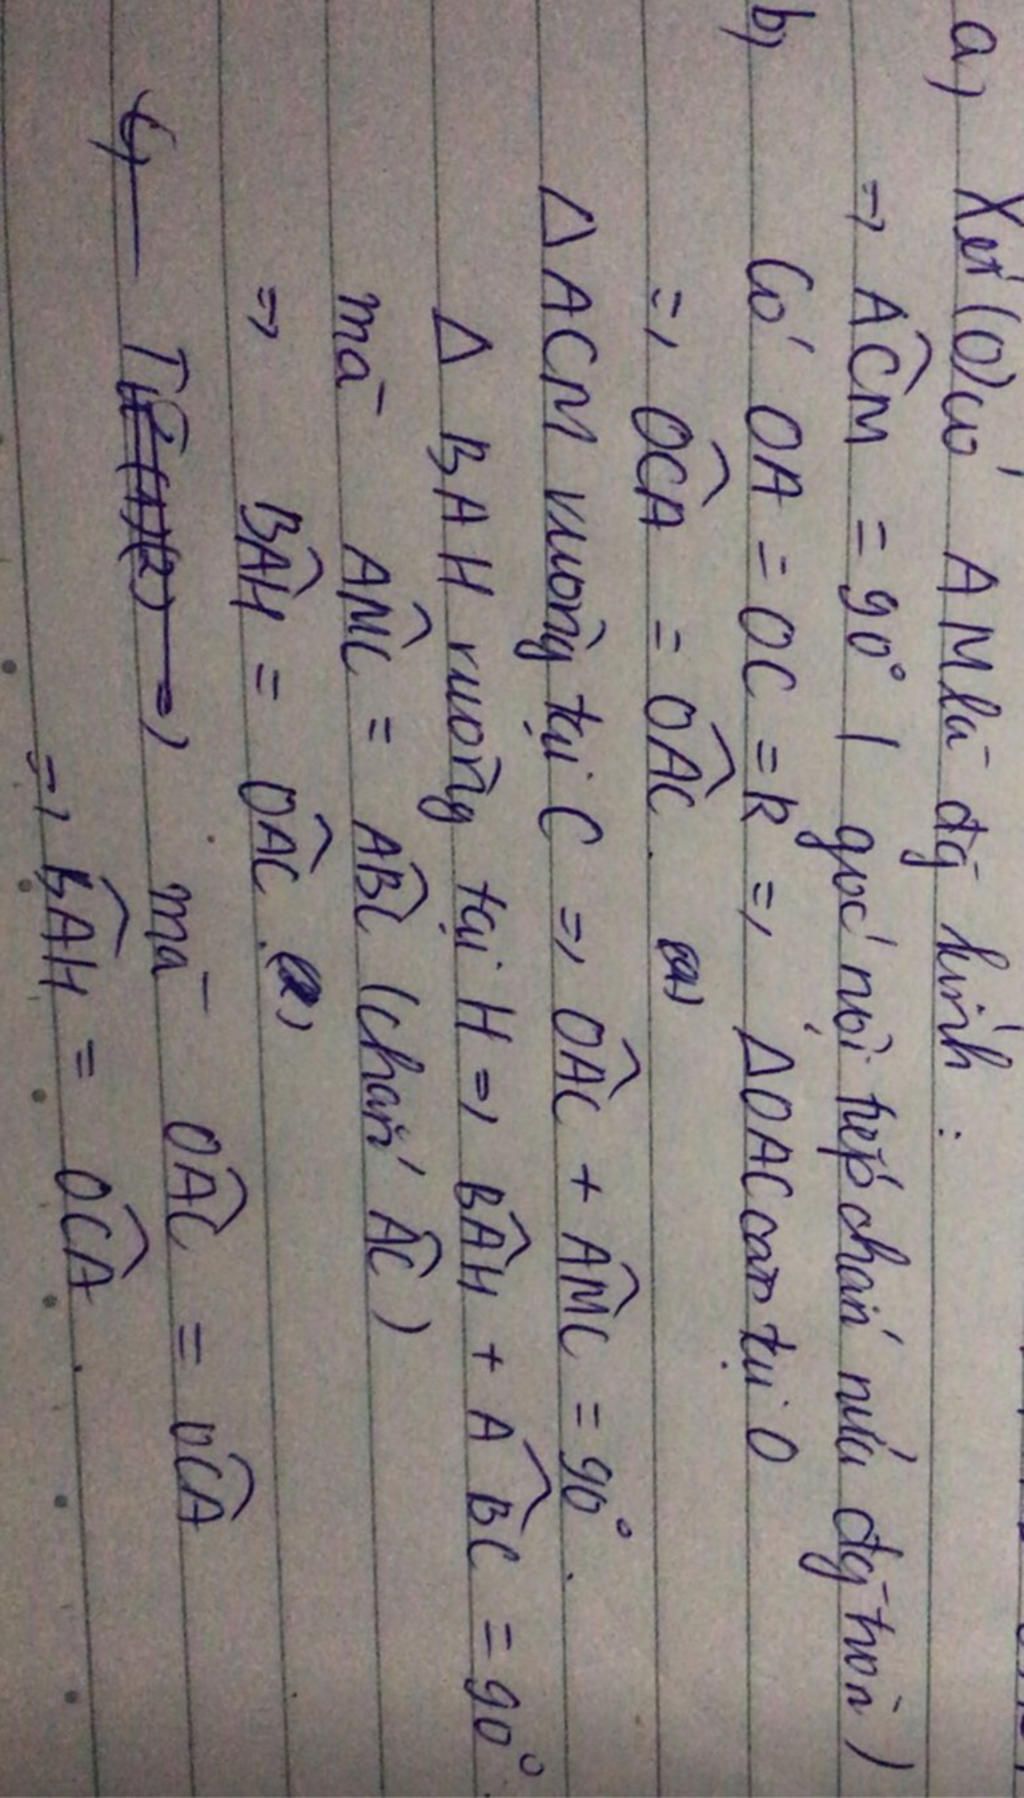 a) Xét (O) có AM là đg kính :
=> AĈM = 90° ( góc nội tiếp chắn nửa đg tròn )
b) Có OA = OC = R => ΔOAC cân tại O
=> OĈA = OÂC. (1)
Δ ACM vuông tại C => OÂC + AM̂C = 90°.
Δ BAH vuông tại H => BÂH + AB̂C = 90°
mà AM̂C = AB̂C (chắn AC)
=> BÂH = OÂC. (2)
mà OÂC = OĈA
=> BÂH = OĈA.